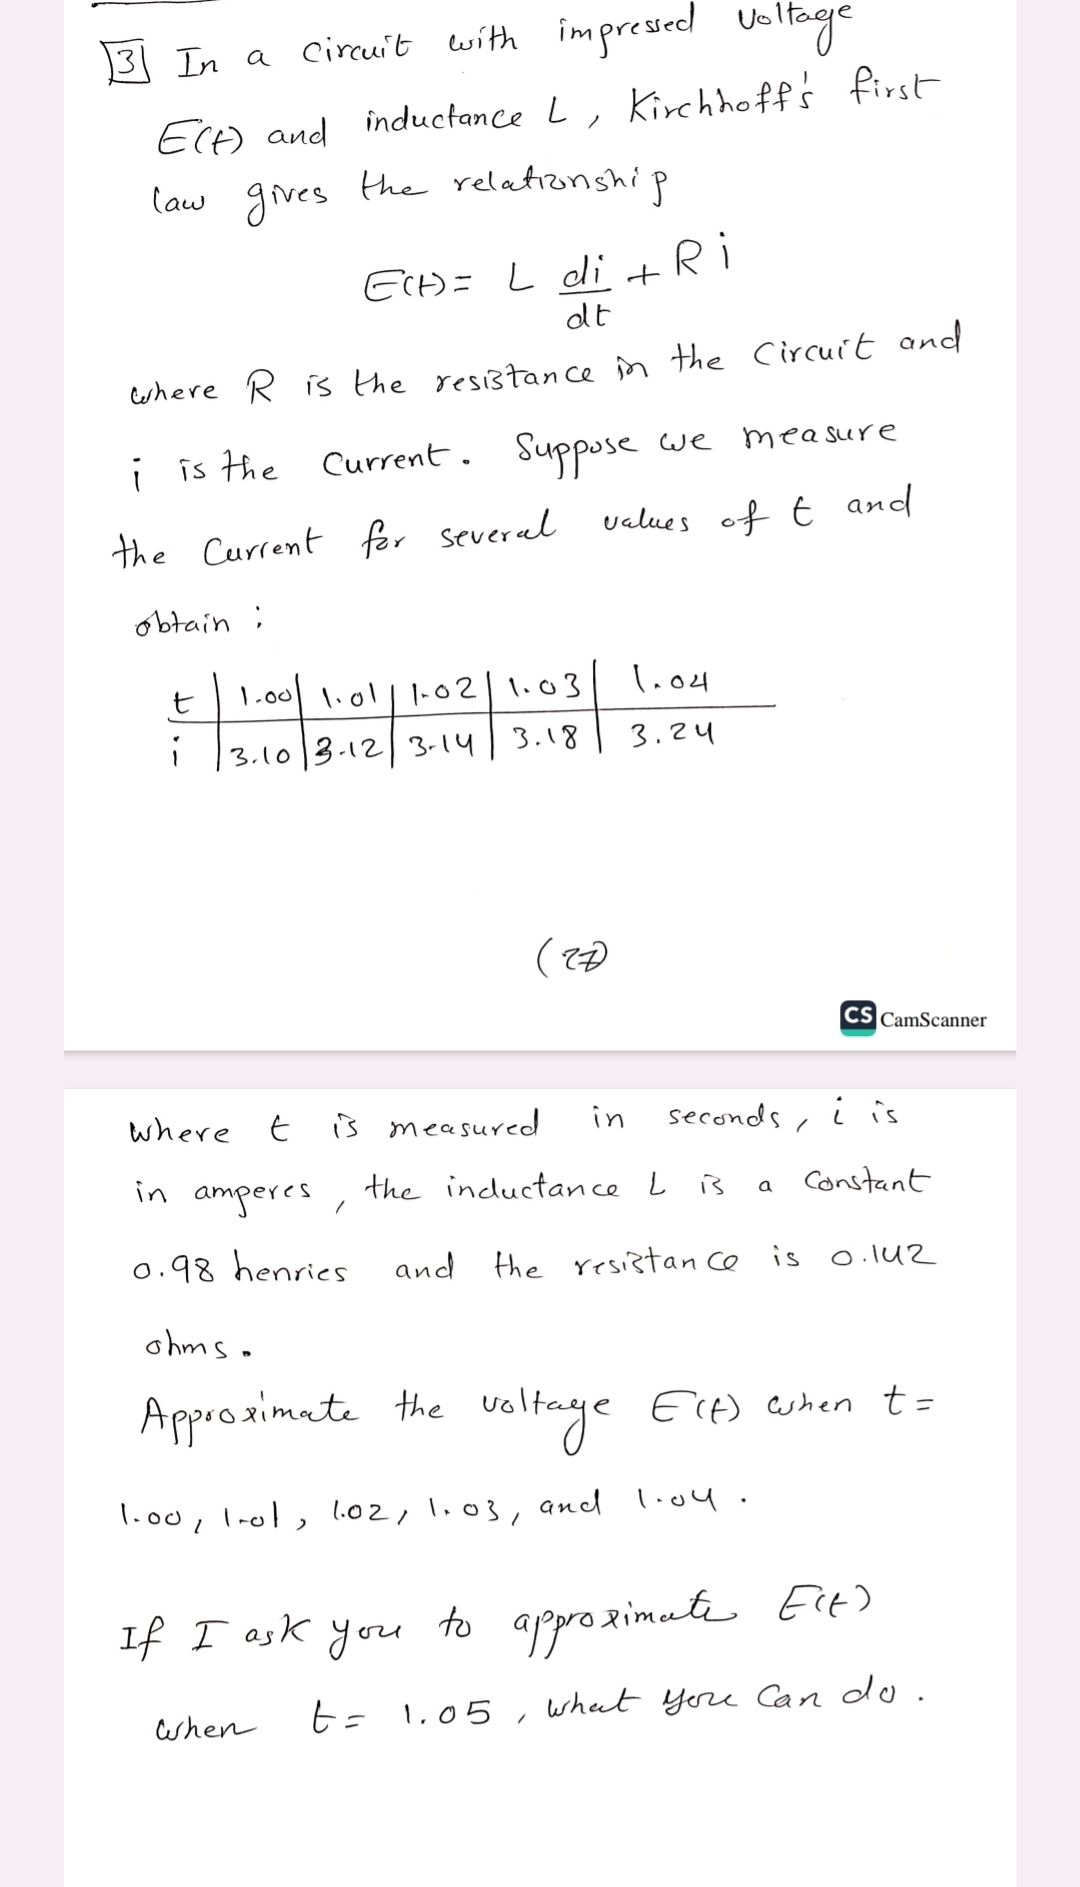 3 In a circuit with impressed voltage
E(t) and inductance L, Kirchhoff's first
law gives the relationship
E(t) = L di/dt + R i
where R is the resistance in the circuit and
i is the current. Suppose we measure
the current for several values of t and
obtain:
t | 1.00 | 1.01 | 1.02 | 1.03 | 1.04
i | 3.10 | 3.12 | 3.14 | 3.18 | 3.24
(27)
CS CamScanner
where t is measured in seconds, i is
in amperes, the inductance L is a constant
0.98 henries and the resistance is 0.142
ohms.
Approximate the voltage E(t) when t =
1.00, 1.01, 1.02, 1.03, and 1.04.
If I ask you to approximate E(t)
when t = 1.05, what you can do.